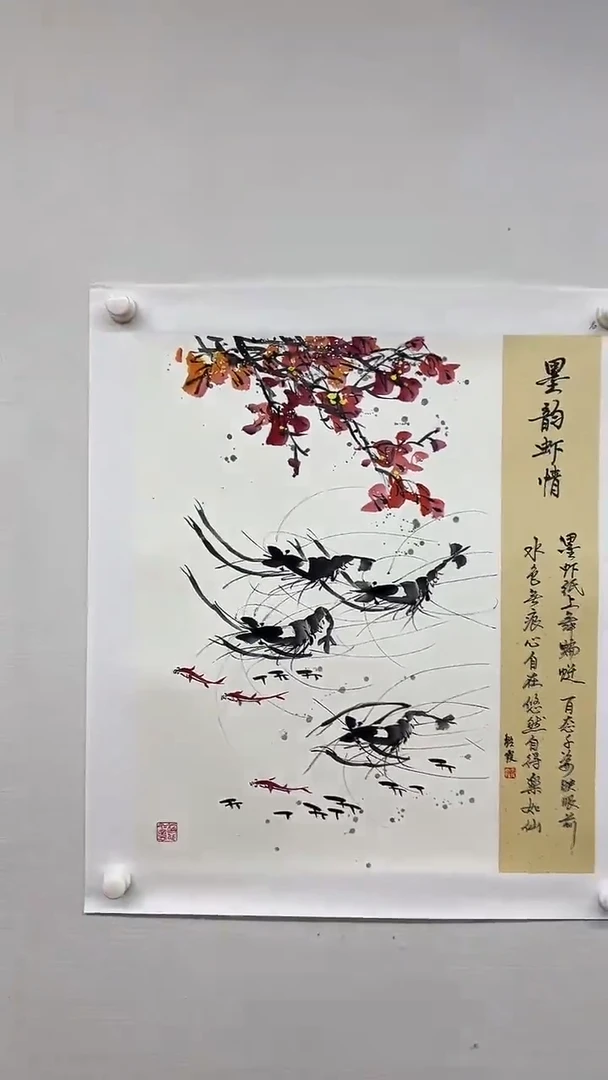 墨韵虾情
墨虾纸上舞蹁跹 百态千姿映眼前
水色无痕心自在 悠然自得乐如仙